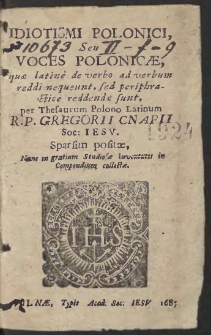 IDIOTISMI POLONICI,
10673 Seu II-7-9
VOCES POLONICÆ,
quæ latinè de verbo ad verbum
reddi nequeunt, sed periphra-
sticè reddendæ sunt,
per Thesaurum Polono Latinum
R. P. GREGORII CNAPII
Soc: IESV.
Sparsim positæ,
Nunc in gratiam Studiosæ Iuventutis in
Compendium collectæ.
IHS
VILNÆ, Typis Acad. Soc: IESV 1687